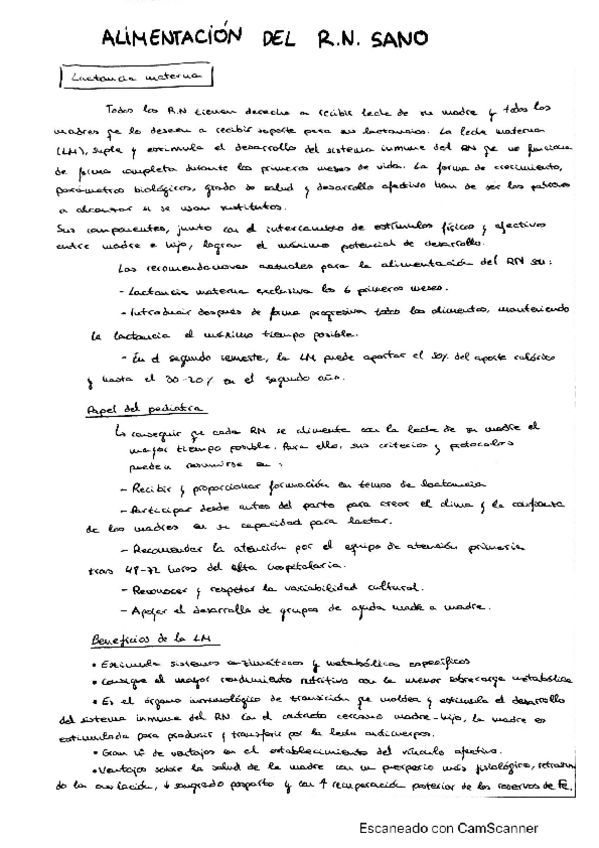 ALIMENTACIÓN DEL R.N. SANO
Lactancia materna
Todos los R.N tienen derecho a recibir leche de su madre y todas las
madres que lo deseen a recibir soporte para su lactancia. La leche materna
(LM), suple y estimula el desarrollo del sistema inmune del RN que no funciona
de forma completa durante los primeros meses de vida. La forma de crecimiento,
parámetros biológicos, grado de salud y desarrollo afectivo han de ser los patrones
a alcanzar si se usan sustitutos.
Sus componentes, junto con el intercambio de estímulos físicos y afectivos
entre madre e hijo, logran el máximo potencial de desarrollo.
Las recomendaciones actuales para la alimentación del RN son:
- Lactancia materna exclusiva los 6 primeros meses.
- Introducir después de forma progresiva todos los alimentos, manteniendo
la lactancia el máximo tiempo posible.
- En el segundo semestre, la LM puede aportar el 50% del aporte calórico
y hasta el 30-20% en el segundo año.
Papel del pediatra
Es conseguir que cada RN se alimente con la leche de su madre el
mayor tiempo posible. Para ello, sus criterios y protocolos
pueden resumirse en:
- Recibir y proporcionar formación en temas de lactancia
- Participar desde antes del parto para crear el clima y la confianza
de las madres en su capacidad para lactar.
- Recomendar la atención por el equipo de atención primaria
tras 48-72 horas del alta hospitalaria.
- Reconocer y respetar la variabilidad cultural.
- Apoyar el desarrollo de grupos de ayuda madre a madre.
Beneficios de la LM
• Estimula sistemas enzimáticos y metabólicos específicos
• Consigue el mayor rendimiento nutritivo con la menor sobrecarga metabólica
• Es el órgano inmunológico de transición que moldea y estimula el desarrollo
del sistema inmune del RN. Con el contacto cercano madre-hijo, la madre es
estimulada para producir y transferir por la leche anticuerpos.
• Gran nº de ventajas en el establecimiento del vínculo afectivo.
• Ventajas sobre la salud de la madre con un puerperio más fisiológico, retrasan
do la ovulación, ↓ sangrado posparto y con ↑ recuperación posterior de las reservas de Fe.
Escaneado con CamScanner